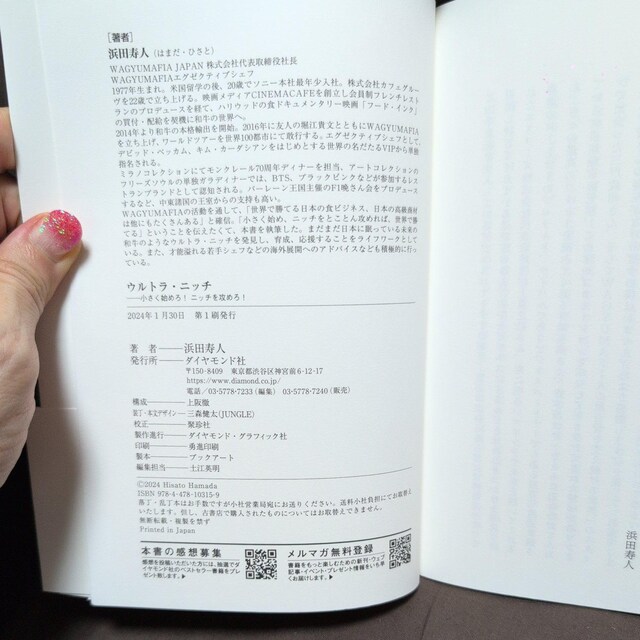 [著者]
浜田寿人(はまだ・ひさと)
WAGYUMAFIA JAPAN 株式会社代表取締役社長
WAGYUMAFIAエグゼクティブシェフ
1977年生まれ。米国留学の後、20歳でソニー本社最年少入社。株式会社カフェグルー
ヴを22歳で立ち上げる。映画メディアCINEMACAFEを創立し会員制フレンチレスト
ランのプロデュースを経て、ハリウッドの食ドキュメンタリー映画「フード・インク」
の買付・配給を契機に和牛の世界へ。
2014年より和牛の本格輸出を開始。2016年に友人の堀江貴文とともにWAGYUMAFIA
を立ち上げ、ワールドツアーを世界100都市にて敢行する。エグゼクティブシェフとして、
デビッド・ベッカム、キム・カーダシアンをはじめとする世界の名だたるVIPから単独
指名される。
ミラノコレクションにてモンクレール70周年ディナーを担当、アートコレクションの
フリーズソウルの単独ガラディナーでは、BTS、ブラックピンクなどが参加するレス
トランブランドとして認知される。バーレーン王国主催のF1晩さん会をプロデュース
するなど、中東諸国の王室からの支持も高い。
WAGYUMAFIAの活動を通して、「世界で勝てる日本の食ビジネス、日本の高級食材
は他にもたくさんある」と確信。「小さく始め、ニッチをとことん攻めれば、世界で勝
てる」ということを伝えたくて、本書を執筆した。まだまだ日本に眠っている未来の
和牛のようなウルトラ・ニッチを発見し、育成、応援することをライフワークとして
いる。また、才能溢れる若手シェフなどの海外展開へのアドバイスなども積極的に行っ
ている。
ウルトラ・ニッチ
──小さく始めろ! ニッチを攻めろ!
2024年1月30日 第1刷発行
著 者──浜田寿人
発行所──ダイヤモンド社
〒150-8409 東京都渋谷区神宮前6-12-17
https://www.diamond.co.jp/
電話/03-5778-7233(編集) 03-5778-7240(販売)
構成────上阪徹
装丁・本文デザイン─三森健太(JUNGLE)
校正────聚珍社
製作進行──ダイヤモンド・グラフィック社
印刷────勇進印刷
製本────ブックアート
編集担当──土江英明
©2024 Hisato Hamada
ISBN 978-4-478-10315-9
落丁・乱丁本はお手数ですが小社営業局宛にお送りください。送料小社負担にてお取替え
いたします。但し、古書店で購入されたものについてはお取替えできません。
無断転載・複製を禁ず
Printed in Japan
本書の感想募集
感想を投稿いただいた方には、抽選でダ
イヤモンド社のベストセラー書籍をプレ
ゼント致します。
メルマガ無料登録
書籍をもっと楽しむための新刊・ウェブ
記事・イベント・プレゼント情報をいち早
くお届けします。
浜田寿人